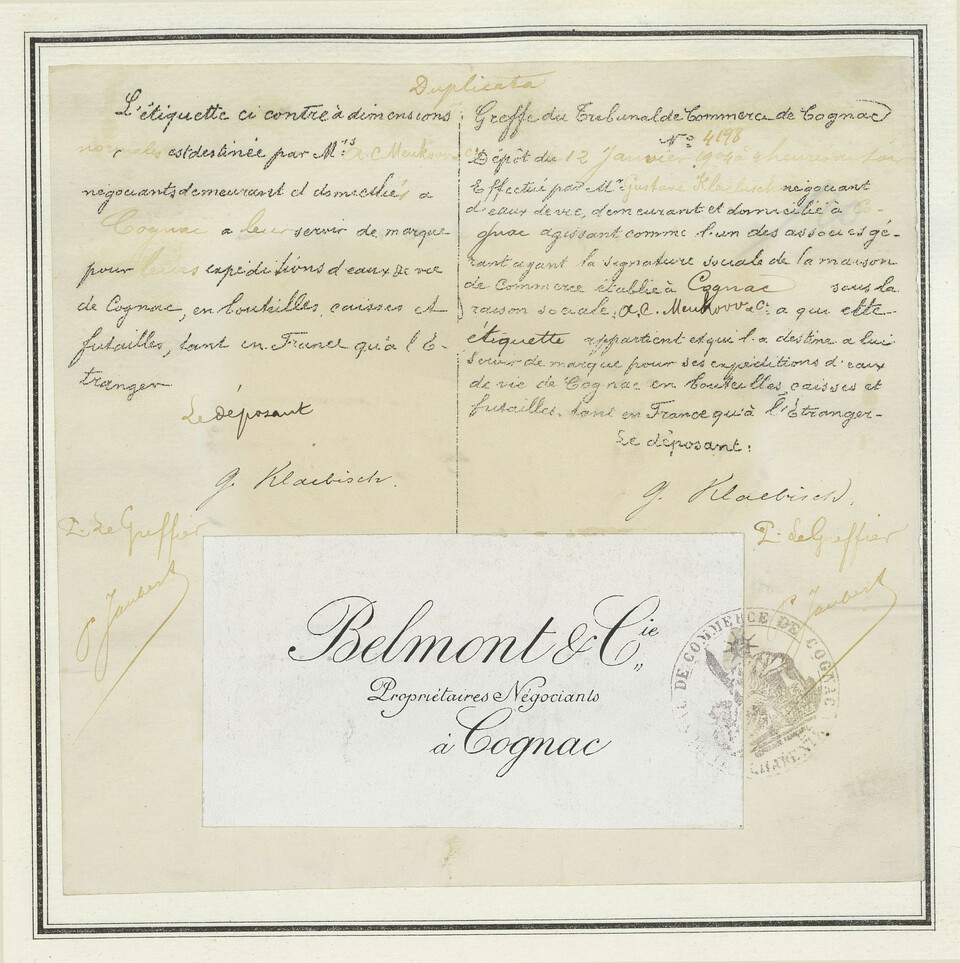 Duplicata
L'étiquette ci contre à dimensions
normales est destinée par M.rs A.C. Meukow & C.
négociants, demeurant et domiciliés à
Cognac a leur servir de marque
pour leurs expéditions d'eaux de vie
de Cognac, en bouteilles, caisses et
futailles, tant en France qu'à l'É-
tranger
Le déposant
G. Klaebisch.
P. Le Greffier
P Jaubert
Greffe du Tribunal de Commerce de Cognac
N° 4198
Dépôt du 12 Janvier 1904 à heures du soir
Effectué par Mr. Gustave Klaebisch négociant
d'eaux de vie, demeurant et domicilié à Co-
gnac agissant comme l'un des associés gé-
rant ayant la signature sociale de la maison
de Commerce établie à Cognac sous la
raison sociale: A.C. Meukow & C. a qui cette
étiquette appartient et qui l'a destine a lui
servir de marque pour ses expéditions d'eaux
de vie de Cognac en bouteilles, caisses et
futailles, tant en France qu'à l'Étranger-
Le déposant:
G. Klaebisch.
P. Le Greffier
P Jaubert
Belmont & Cie
Propriétaires Négociants
à Cognac
DE COMMERCE DE COGNAC